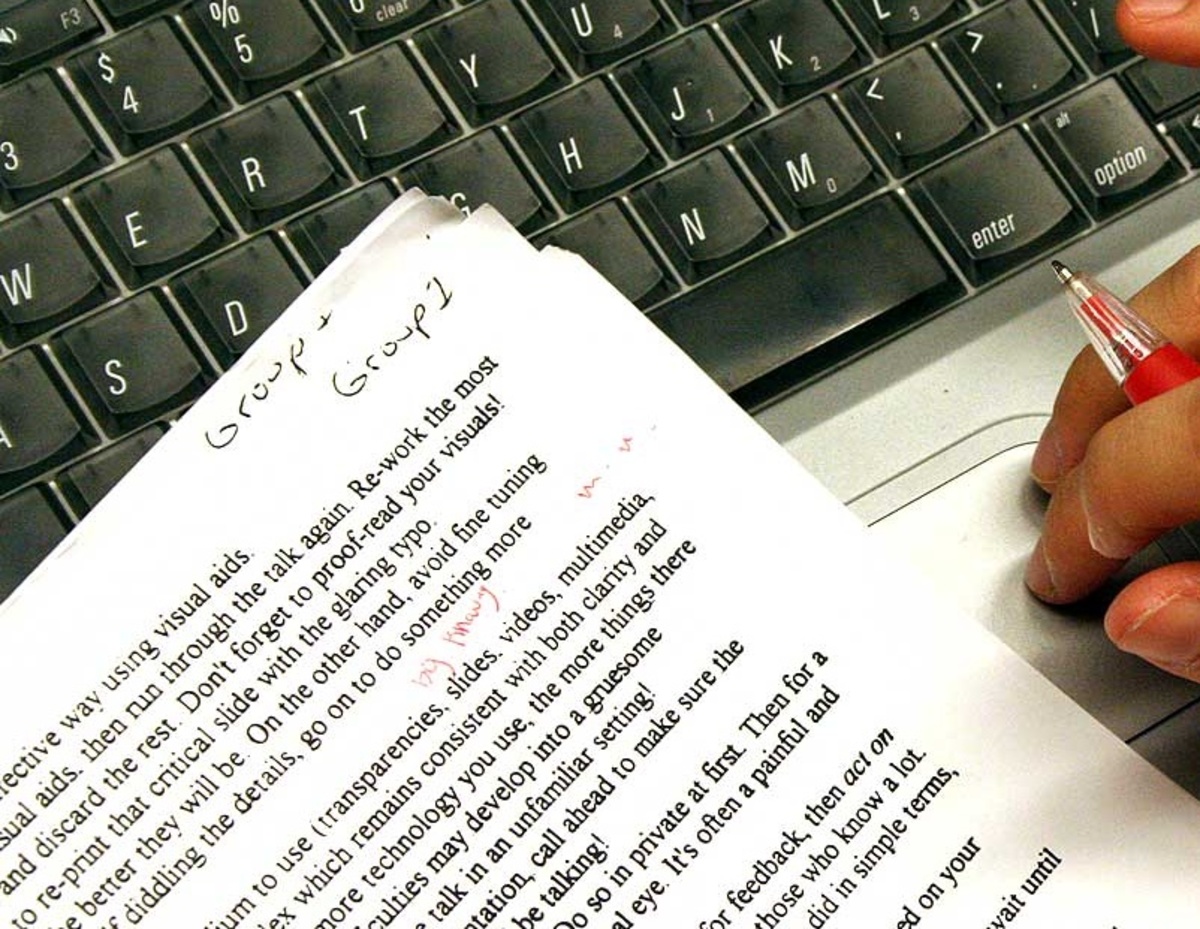 F3
% 5
clear
U 4
L 3
$ 4
Y
K 2
> .
3
R
T
J 1
< ,
alt option
E
H
M 0
W
G
N
enter
D
S
A
Group
Group 1
using visual aids.
aids, then run through the talk again. Re-work the most
and discard the rest. Don't forget to proof-read your visuals!
to re-print that critical slide with the glaring typo.
better they will be. On the other hand, avoid fine tuning
diddling the details, go on to do something more
big
to use (transparencies, slides, videos, multimedia,
which remains consistent with both clarity and
more technology you use, the more things there
may develop into a gruesome
talk in an unfamiliar setting!
call ahead to make sure the
be talking!
Do so in private at first. Then for a
eye. It's often a painful and
for feedback, then act on
those who know a lot.
did in simple terms,
on your
wait until